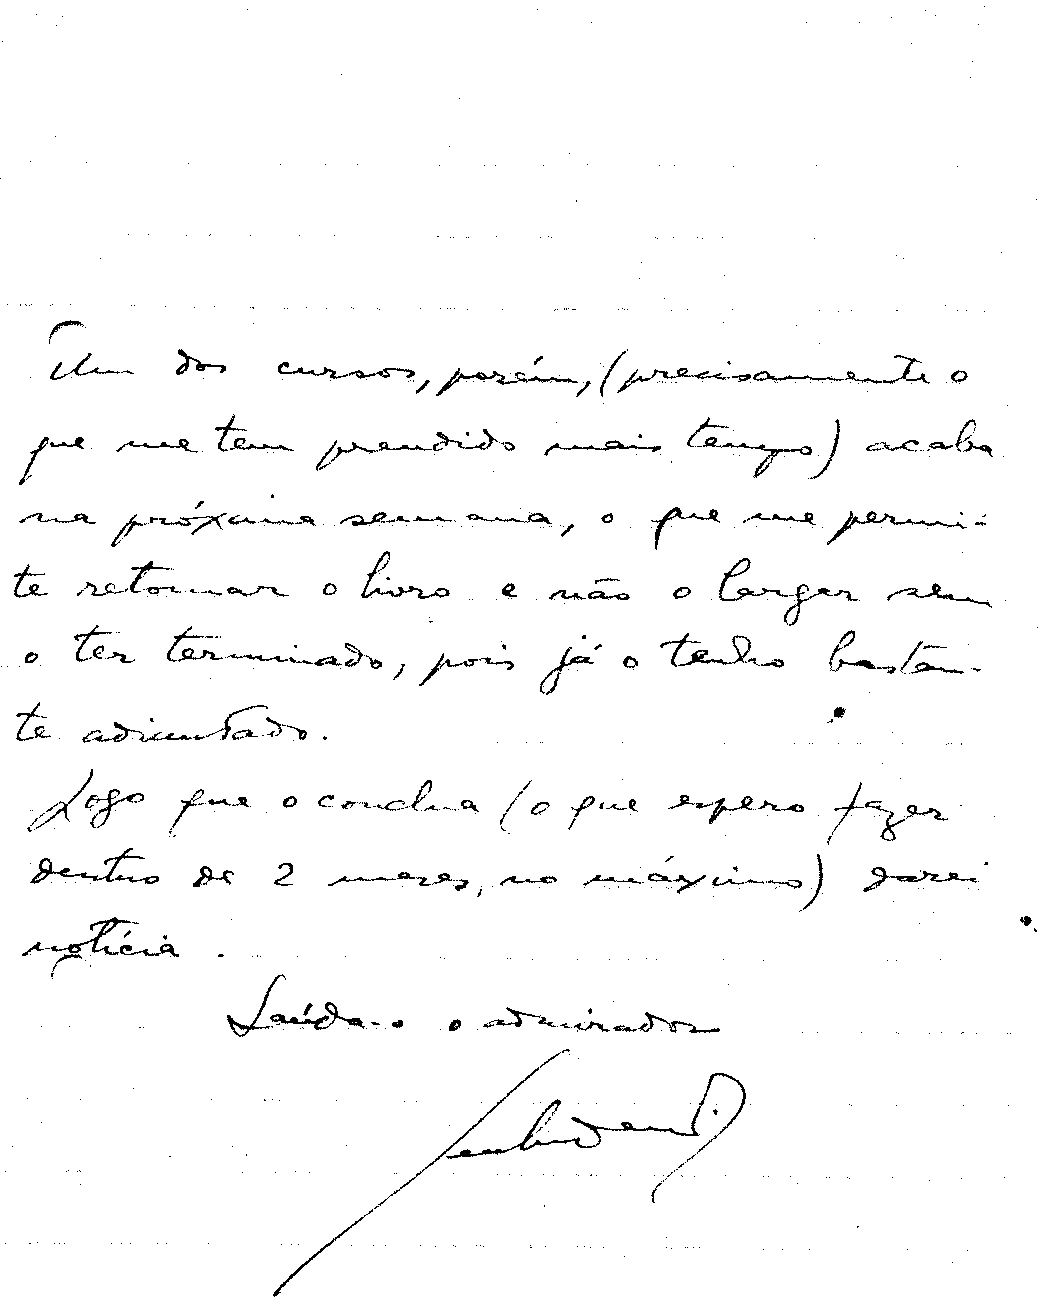 Um dos cursos, porém, (precisamente o
que me tem prendido mais tempo) acaba
na próxima semana, o que me permi-
te retomar o livro e não o largar sem
o ter terminado, pois já o tenho bastan-
te adiantado.
Logo que o conclua (o que espero fazer
dentro de 2 meses, no máximo) darei
notícia.
Saúda-o o admirador